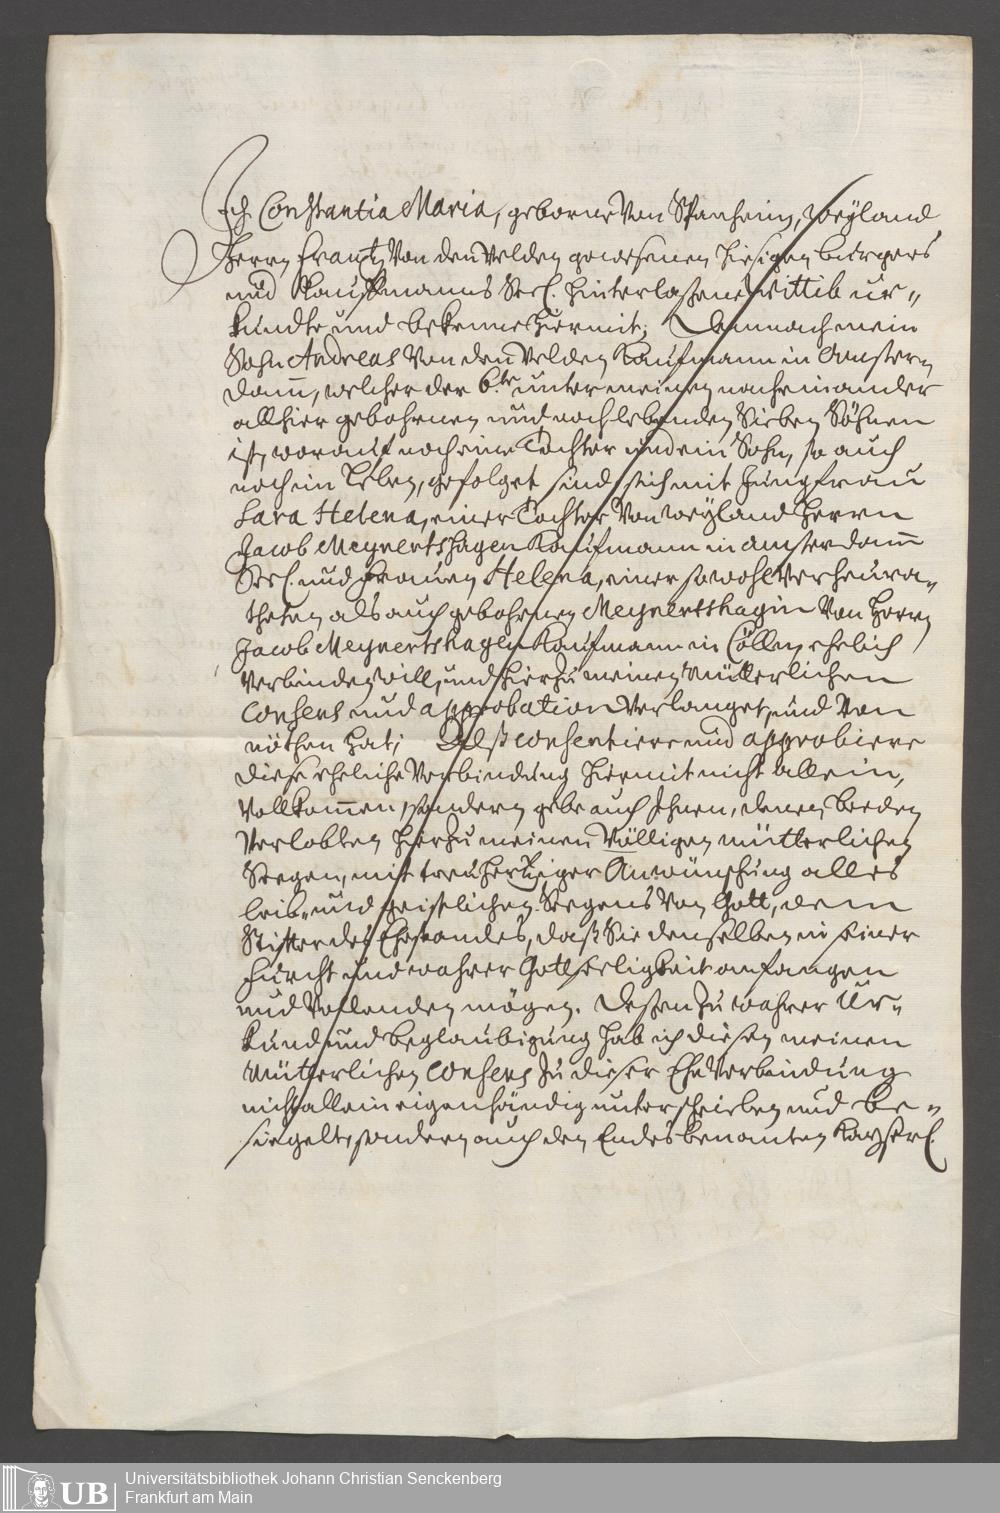 Ich Constantia Maria, geborne von Spanheim, weyland
Herrn Frantz von den Velden gewesenen hiesigen burgers
und Kauffmanns Seel. hinterlaßene Wittib ur-
kundte und bekenne hiermit; Demnach mein
Sohn Andreas von den Velden Kaufmann in Amster-
dam, welcher der 6.te unter meinen nacheinander
allhier gebohrnen und noch lebenden Sieben Söhnen
ist, worauf noch eine Tochter und ein Sohn, so auch
noch im Leben, gefolget sind, sich mit Jungfrau
Sara Helena, einer Tochter von weyland Herrn
Jacob Meynertshagen Kaufmann in Amsterdam
Seel. und Frauen Helena, einer sowohl verheura-
theten als auch gebohrnen Meynertshagin von Herrn
Jacob Meynertshagen Kaufmann in Cöllen ehelich
verbinden will, und hierzu meinen Mütterlichen
Consens und approbation verlanget, und von
nöthen hat; Alß consentiere und approbiere
diese eheliche Verbindung hiermit nicht allein,
vollkommen, sondern gebe auch Ihnen, denen beeden
Verlobten hierzu meinen völligen mütterlichen
Seegen, mit treuhertziger Anwünschung alles
leib- und geistlichen Seegens von Gott, dem
Stifter des Ehestandes, daß Sie denselben in seiner
Furcht und wahrer Gottseeligkeit anfangen
und vollenden mögen. Deßen zu wahrer Ur-
kund und beglaubigung hab ich diesen meinen
Mütterlichen Consens zu dieser Ehe Verbindung
nicht allein eigenhändig unterschrieben und be-
siegelt, sondern auch den Endesbenanten Kayserl.
UB
Universitätsbibliothek Johann Christian Senckenberg
Frankfurt am Main